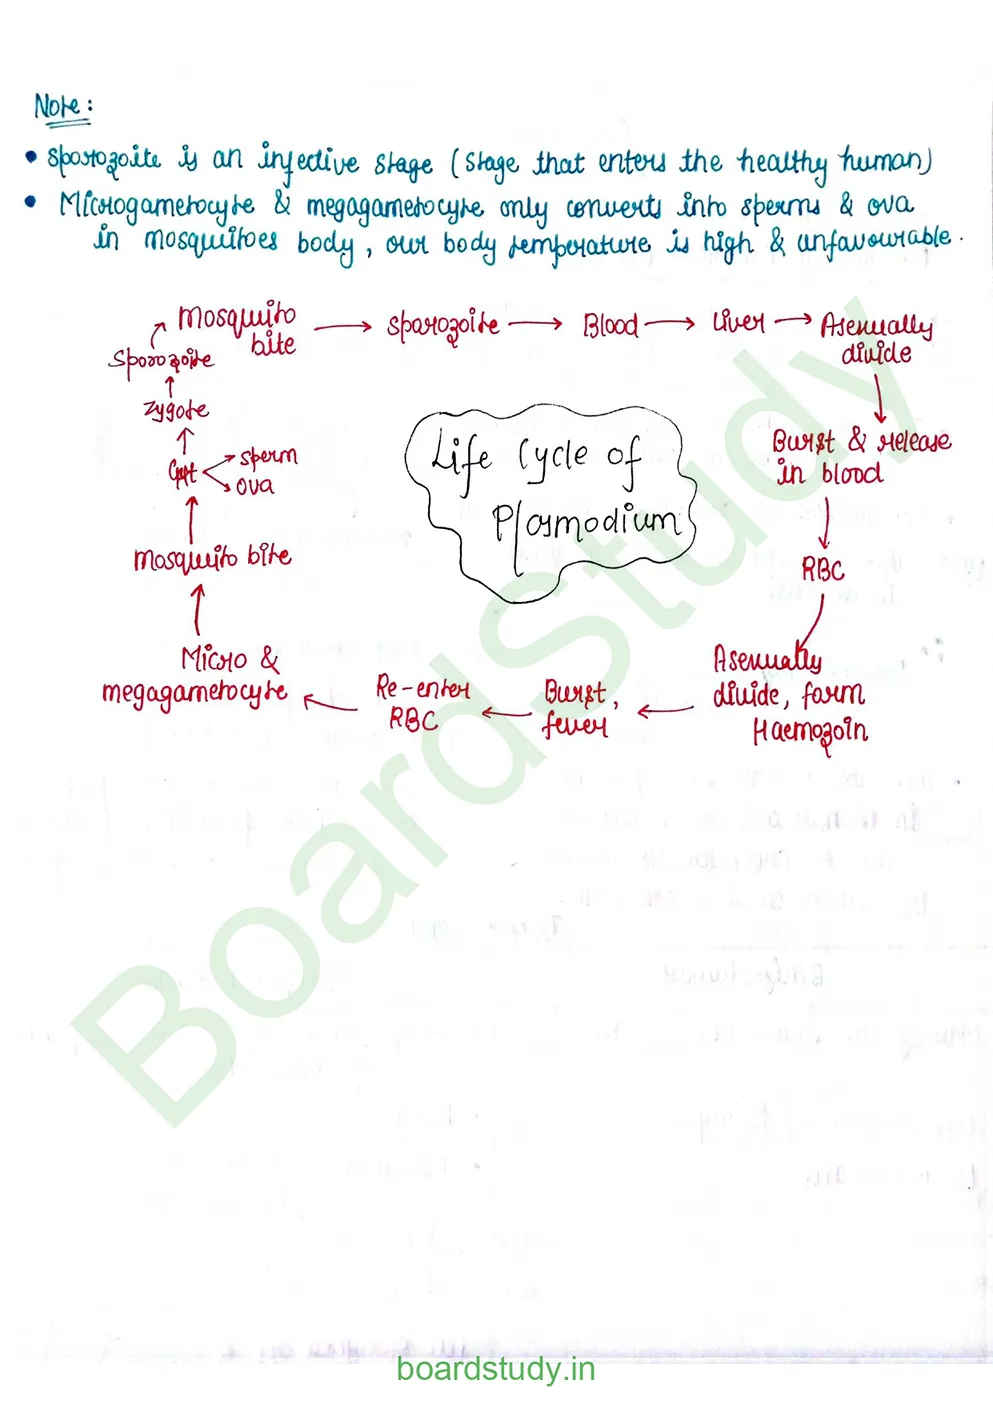 Note:
• Sporozoite is an infective stage (stage that enters the healthy human)
• Microgametocyte & megagametocyte only converts into sperms & ova
in mosquitoes body, our body temperature is high & unfavourable.
Mosquito
bite
→ Sporozoite → Blood → Liver → Asexually
divide
Burst & release
in blood
RBC
Asexually
divide, form
Haemozoin
Burst,
fever
Re-enter
RBC
Micro &
megagametocyte
Mosquito bite
Gut
sperm
ova
Zygote
Sporozoite
Life Cycle of
Plasmodium
BoardStudy
boardstudy.in